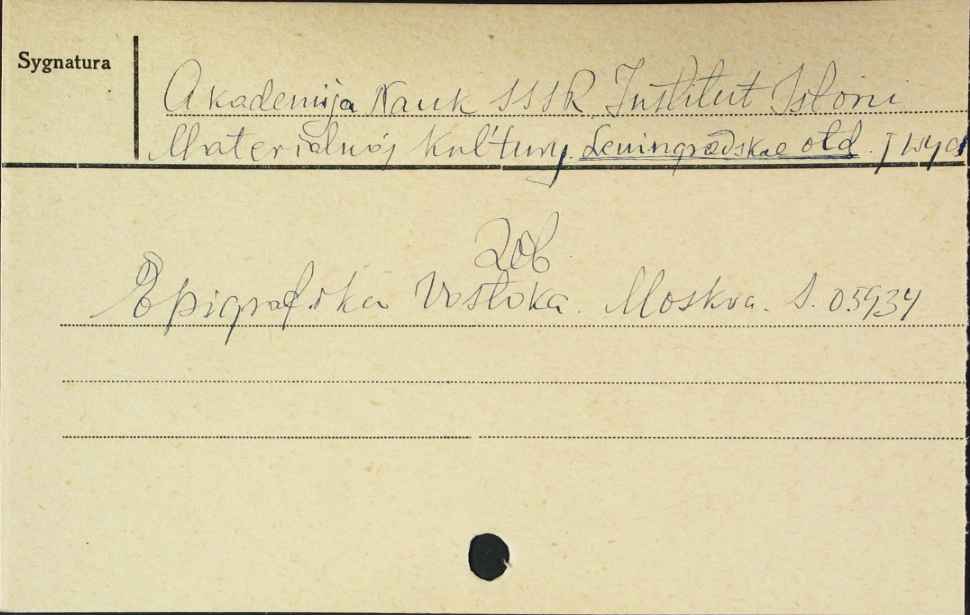 Sygnatura
Akademija Nauk SSSR. Institut Istorii
Materialnoj Kul'tury. Leningradskoe otd.
zob
Epigrafika Vostoka. Moskva. S. 05934